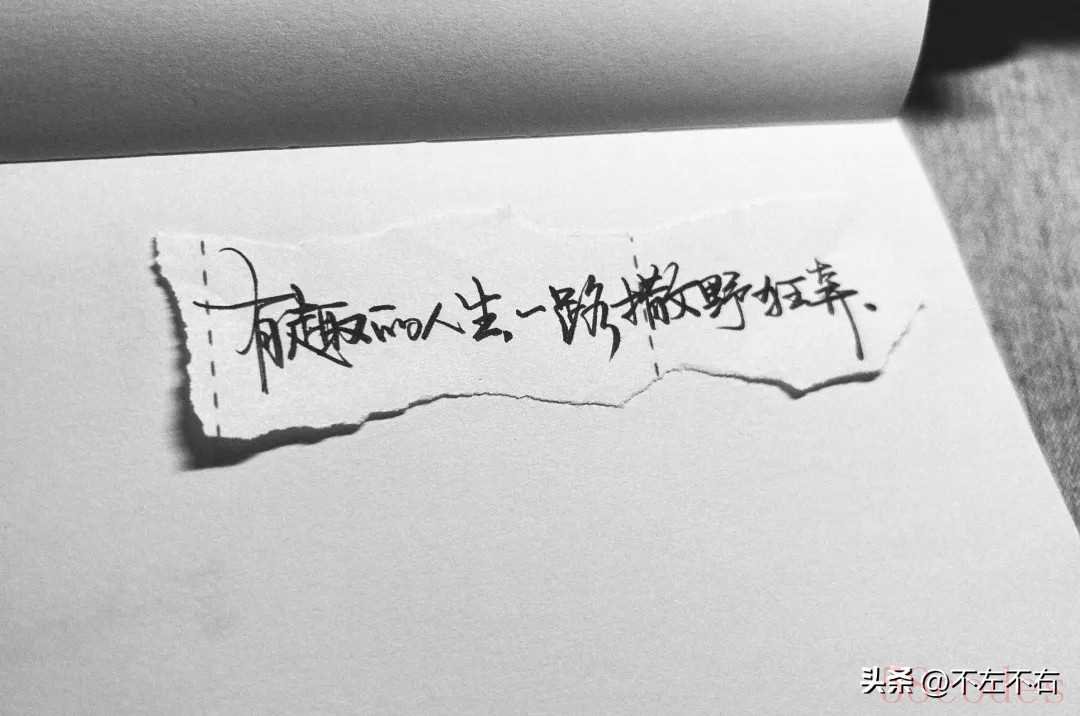 有趣的人生、一路撒野狂奔、
头条 @不左不右
58codes